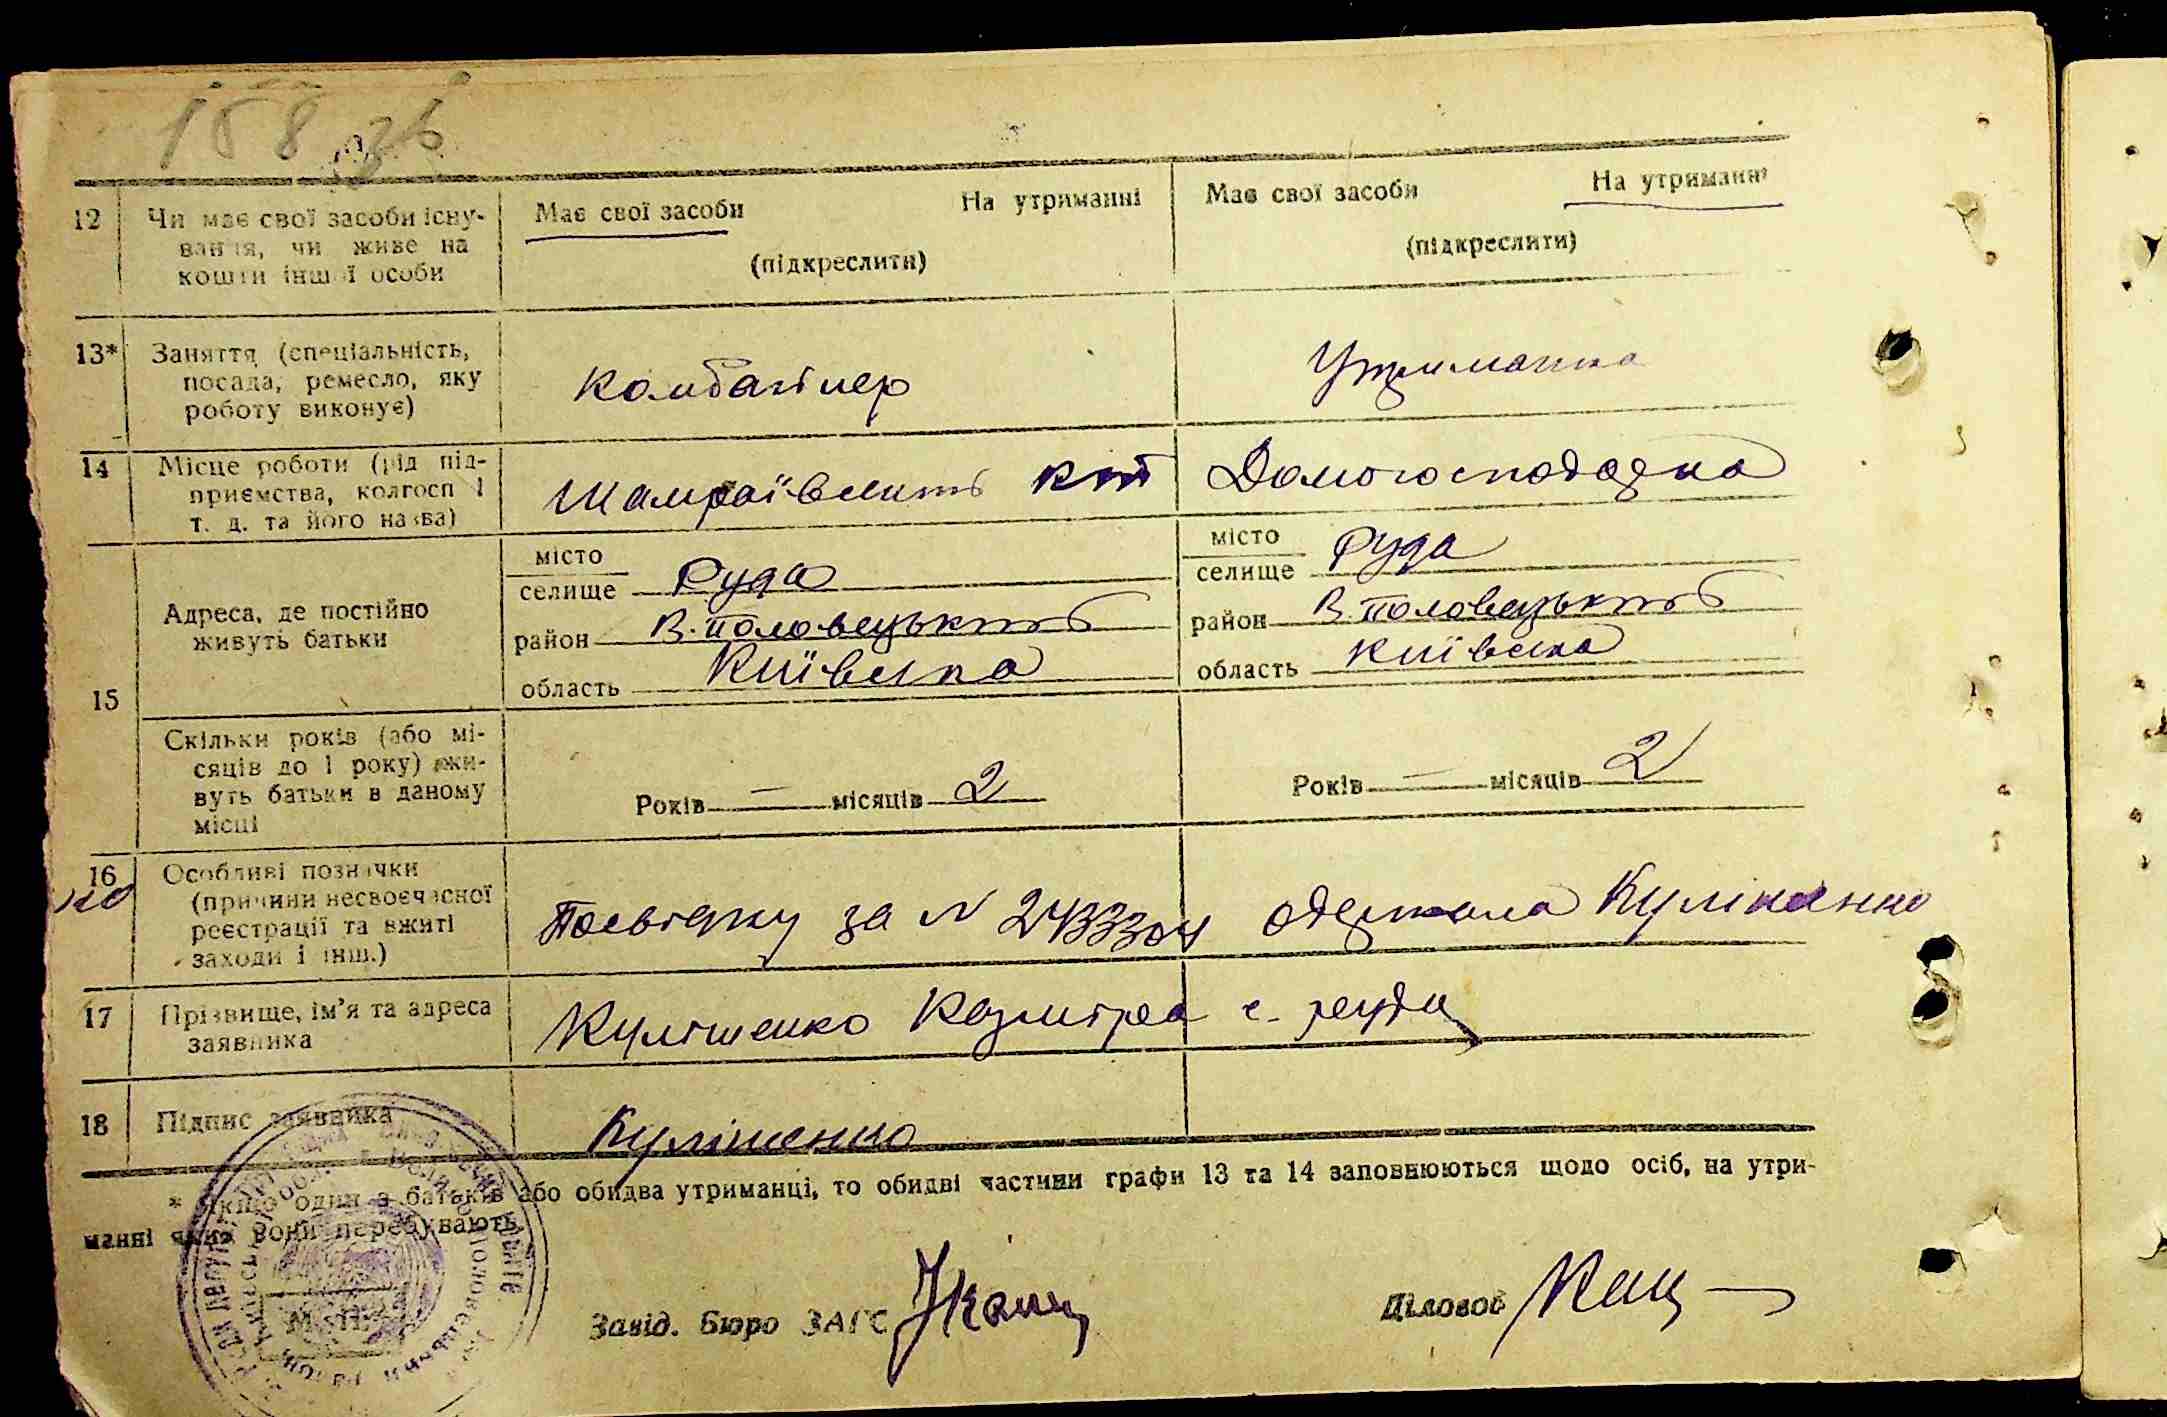 158 зв
12
Чи має свої засоби існу-
вання, чи живе на
кошти іншої особи
Має свої засоби На утриманні
(підкреслити)
Має свої засоби На утриманні
(підкреслити)
13*
Заняття (спеціальність,
посада, ремесло, яку
роботу виконує)
Комбайнер
Утриманка
14
Місце роботи (рід під-
приємства, колгосп і
т. д. та його назва)
Шамраївський
Домогосподарка
15
Адреса, де постійно
живуть батьки
місто
селище Руда
район В.Половецький
область Київська
місто
селище Руда
район В.Половецький
область Київська
Скільки років (або мі-
сяців до 1 року) жи-
вуть батьки в даному
місці
Років — місяців 2
Років — місяців 2
16
Особливі позначки
(причини несвоєчасної
реєстрації та вжиті
заходи і інш.)
Посвідку за № 243304 одержала
17
Прізвище, ім'я та адреса
заявника
Кулішенко с. Руда
18
Підпис заявника
Кулішенко
* Якщо один з батьків або обидва утриманці, то обидві частини графи 13 та 14 заповнюються щодо осіб, на утри-
манні яких вони перебувають.
М. П.
Завід. Бюро ЗАГС
Діловод